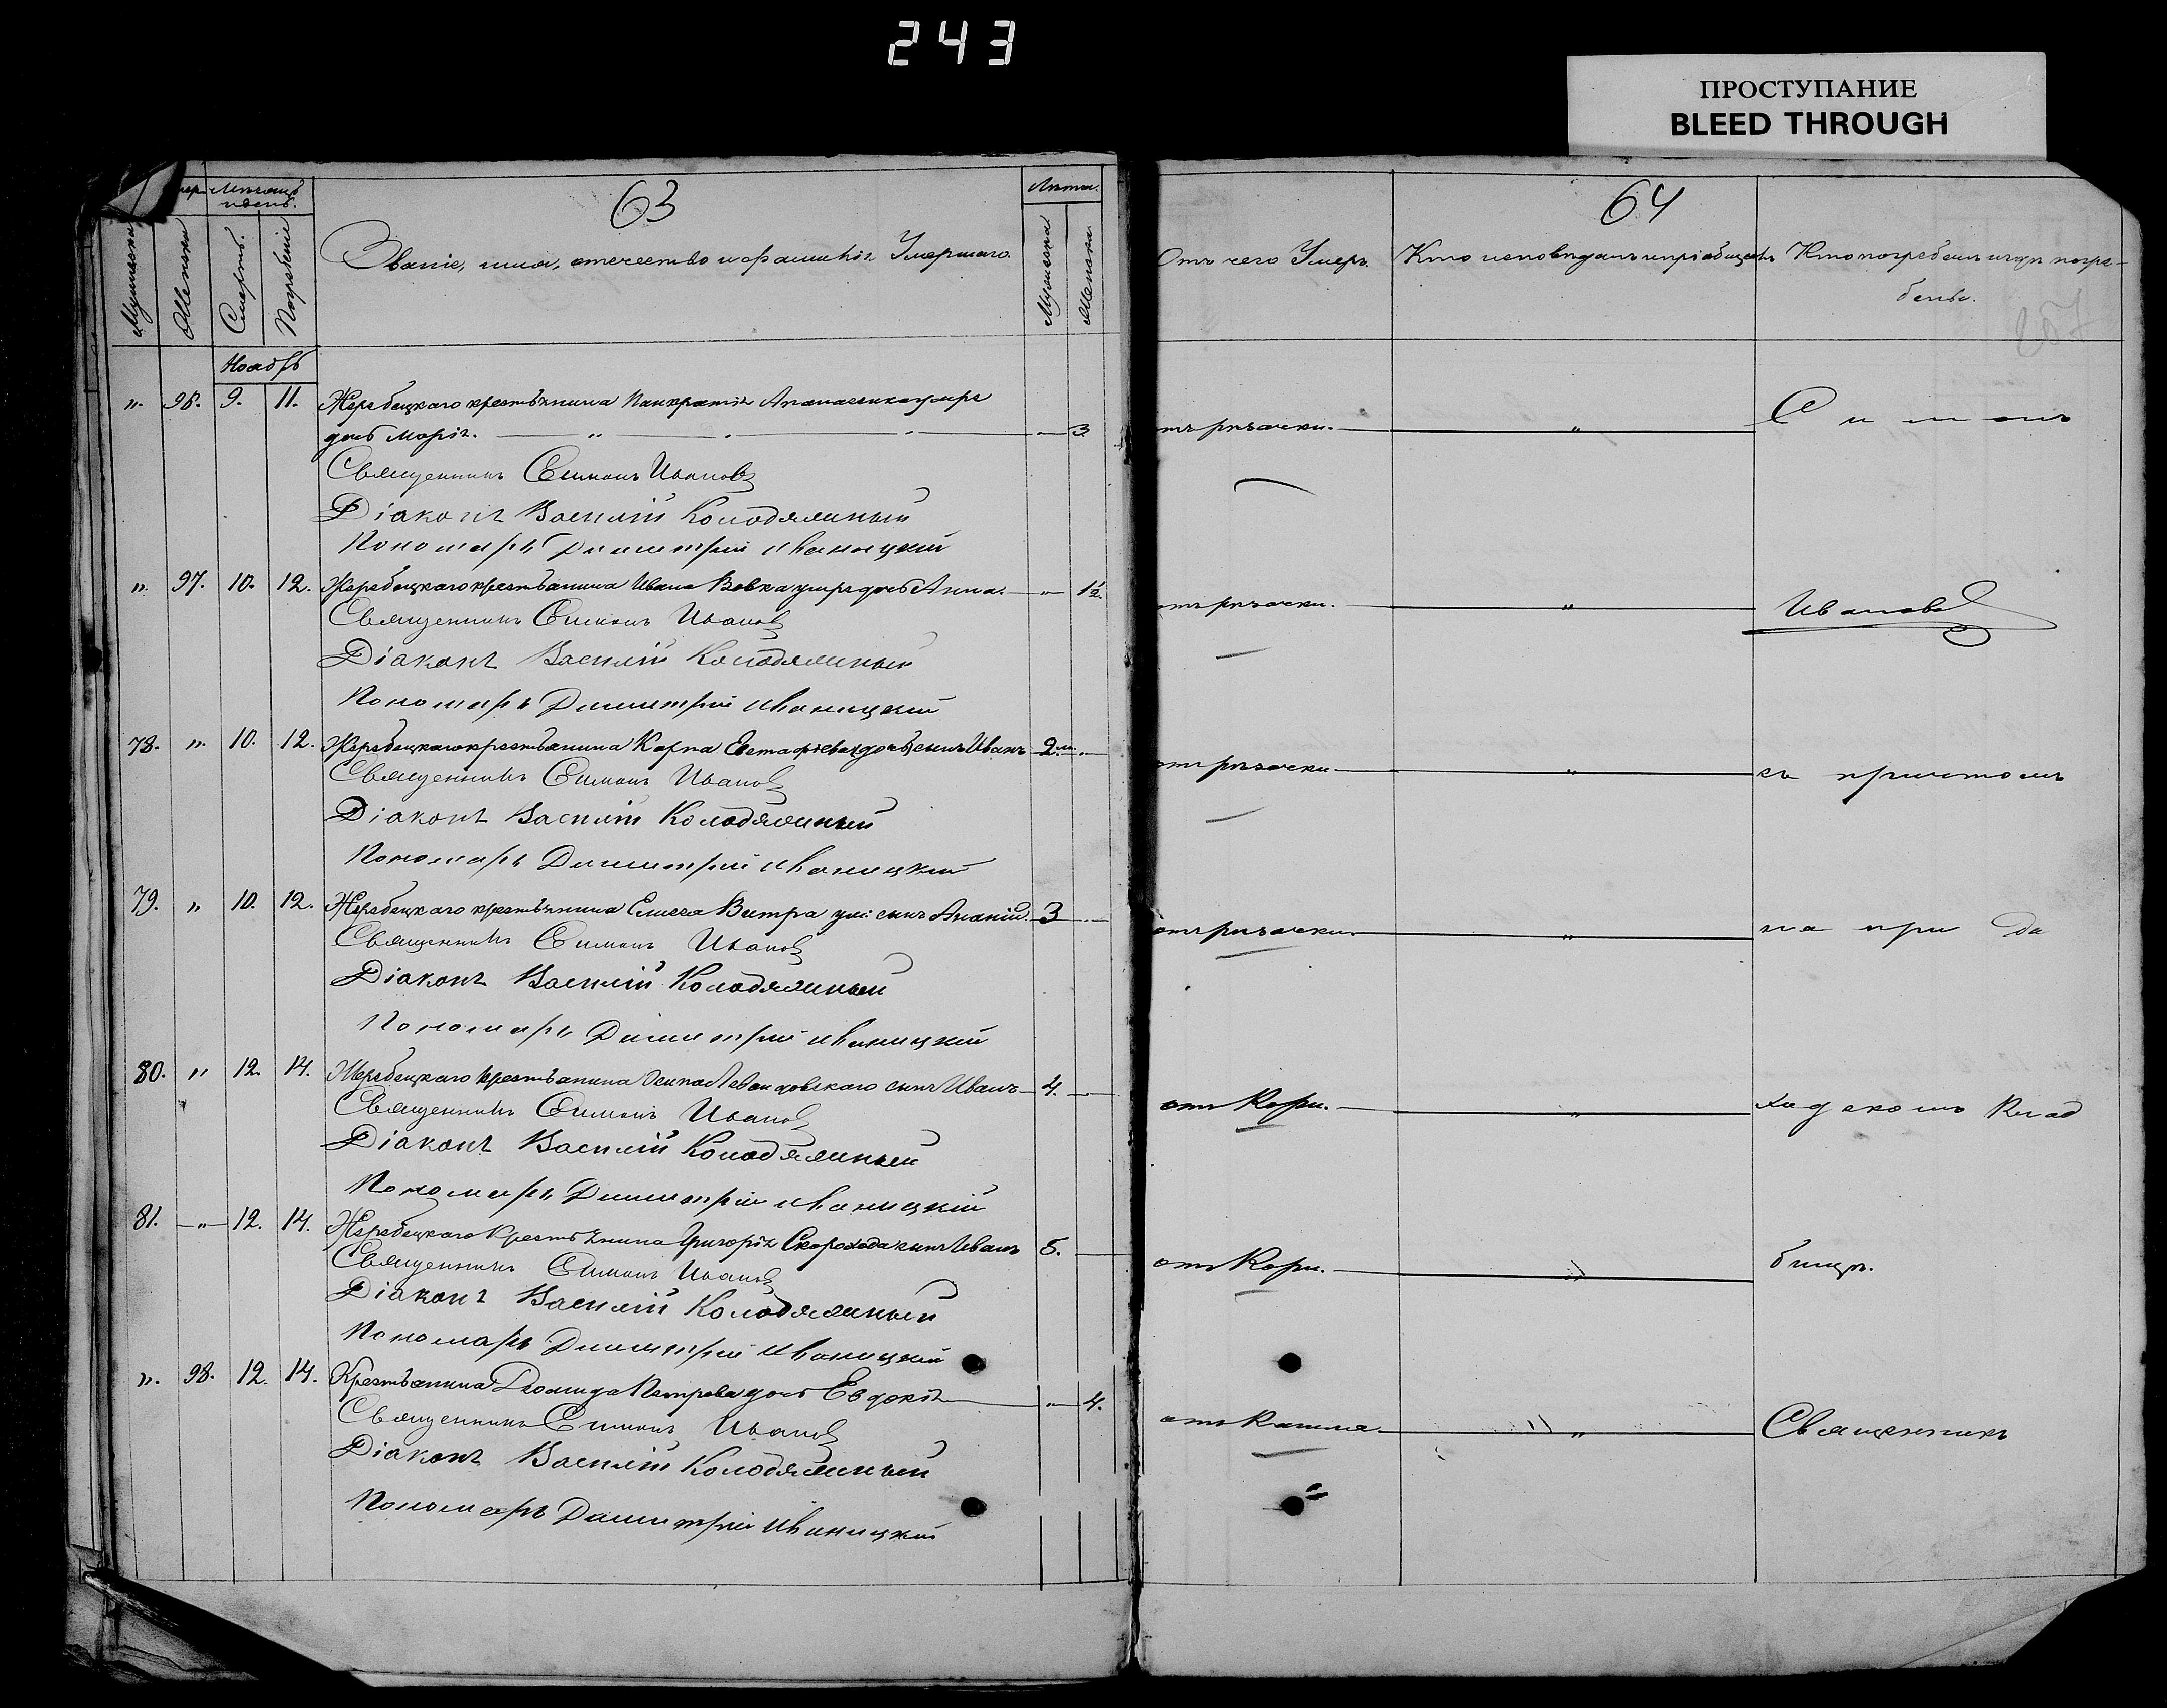 243
ПРОСТУПАНИЕ
BLEED THROUGH
63
Мѣсяцъ и день.
Лѣта.
Мужеска
Женска
Смерть.
Погребеніе
Званіе, имя, отечество и фамилія Умершаго.
Мужеска
Женска
Ноябрь
". 96. 9. 11. Жеребецкаго крестьянина Панкратія Апанасенка умре
дочь Марія. — " — 3
Священникъ Симонъ Ивановъ
Діаконъ Василій Колодяжный
Пономарь Димитрій Иваницкій
". 97. 10. 12. Жеребецкаго крестьянина Ивана Вовка умре дочь Анна. — " — 1½.
Священникъ Симонъ Ивановъ
Діаконъ Василій Колодяжный
Пономарь Димитрій Иваницкій
78. ". 10. 12. Жеребецкаго крестьянина Карпа Евстафіева сынъ Иванъ 2 м. —
Священникъ Симонъ Ивановъ
Діаконъ Василій Колодяжный
Пономарь Димитрій Иваницкій
79. " 10. 12. Жеребецкаго крестьянина Елисея Витра ум: сынъ Ананій. 3 —
Священникъ Симонъ Ивановъ
Діаконъ Василій Колодяжный
Пономарь Димитрій Иваницкій
80. " 12. 14. Жеребецкаго крестьянина Осипа Левандовскаго сынъ Иванъ — 4. —
Священникъ Симонъ Ивановъ
Діаконъ Василій Колодяжный
Пономарь Димитрій Иваницкій
81. — " — 12. 14. Жеребецкаго Крестьянина Григорія Скорохода сынъ Иванъ 5. —
Священникъ Симонъ Ивановъ
Діаконъ Василій Колодяжный
Пономарь Димитрій Иваницкій
". 98. 12. 14. Крестьянина Діомида Петрова дочь Евдокія — " — 4.
Священникъ Симонъ Ивановъ
Діаконъ Василій Колодяжный
Пономарь Димитрій Иваницкій
64
Отъ чего Умеръ.
Кто исповѣдалъ и пріобщалъ
Кто погребалъ и гдѣ погре-
бены.
отъ рѣзачки. — " — Симонъ
отъ рѣзачки. — " — Ивановъ
отъ рѣзачки — " — съ причтомъ
отъ рѣзачки. — " — на при хо
отъ Кори. — " — ходскомъ Клад
отъ Кори. — " — бищѣ.
отъ Кашля. — " — Священникъ